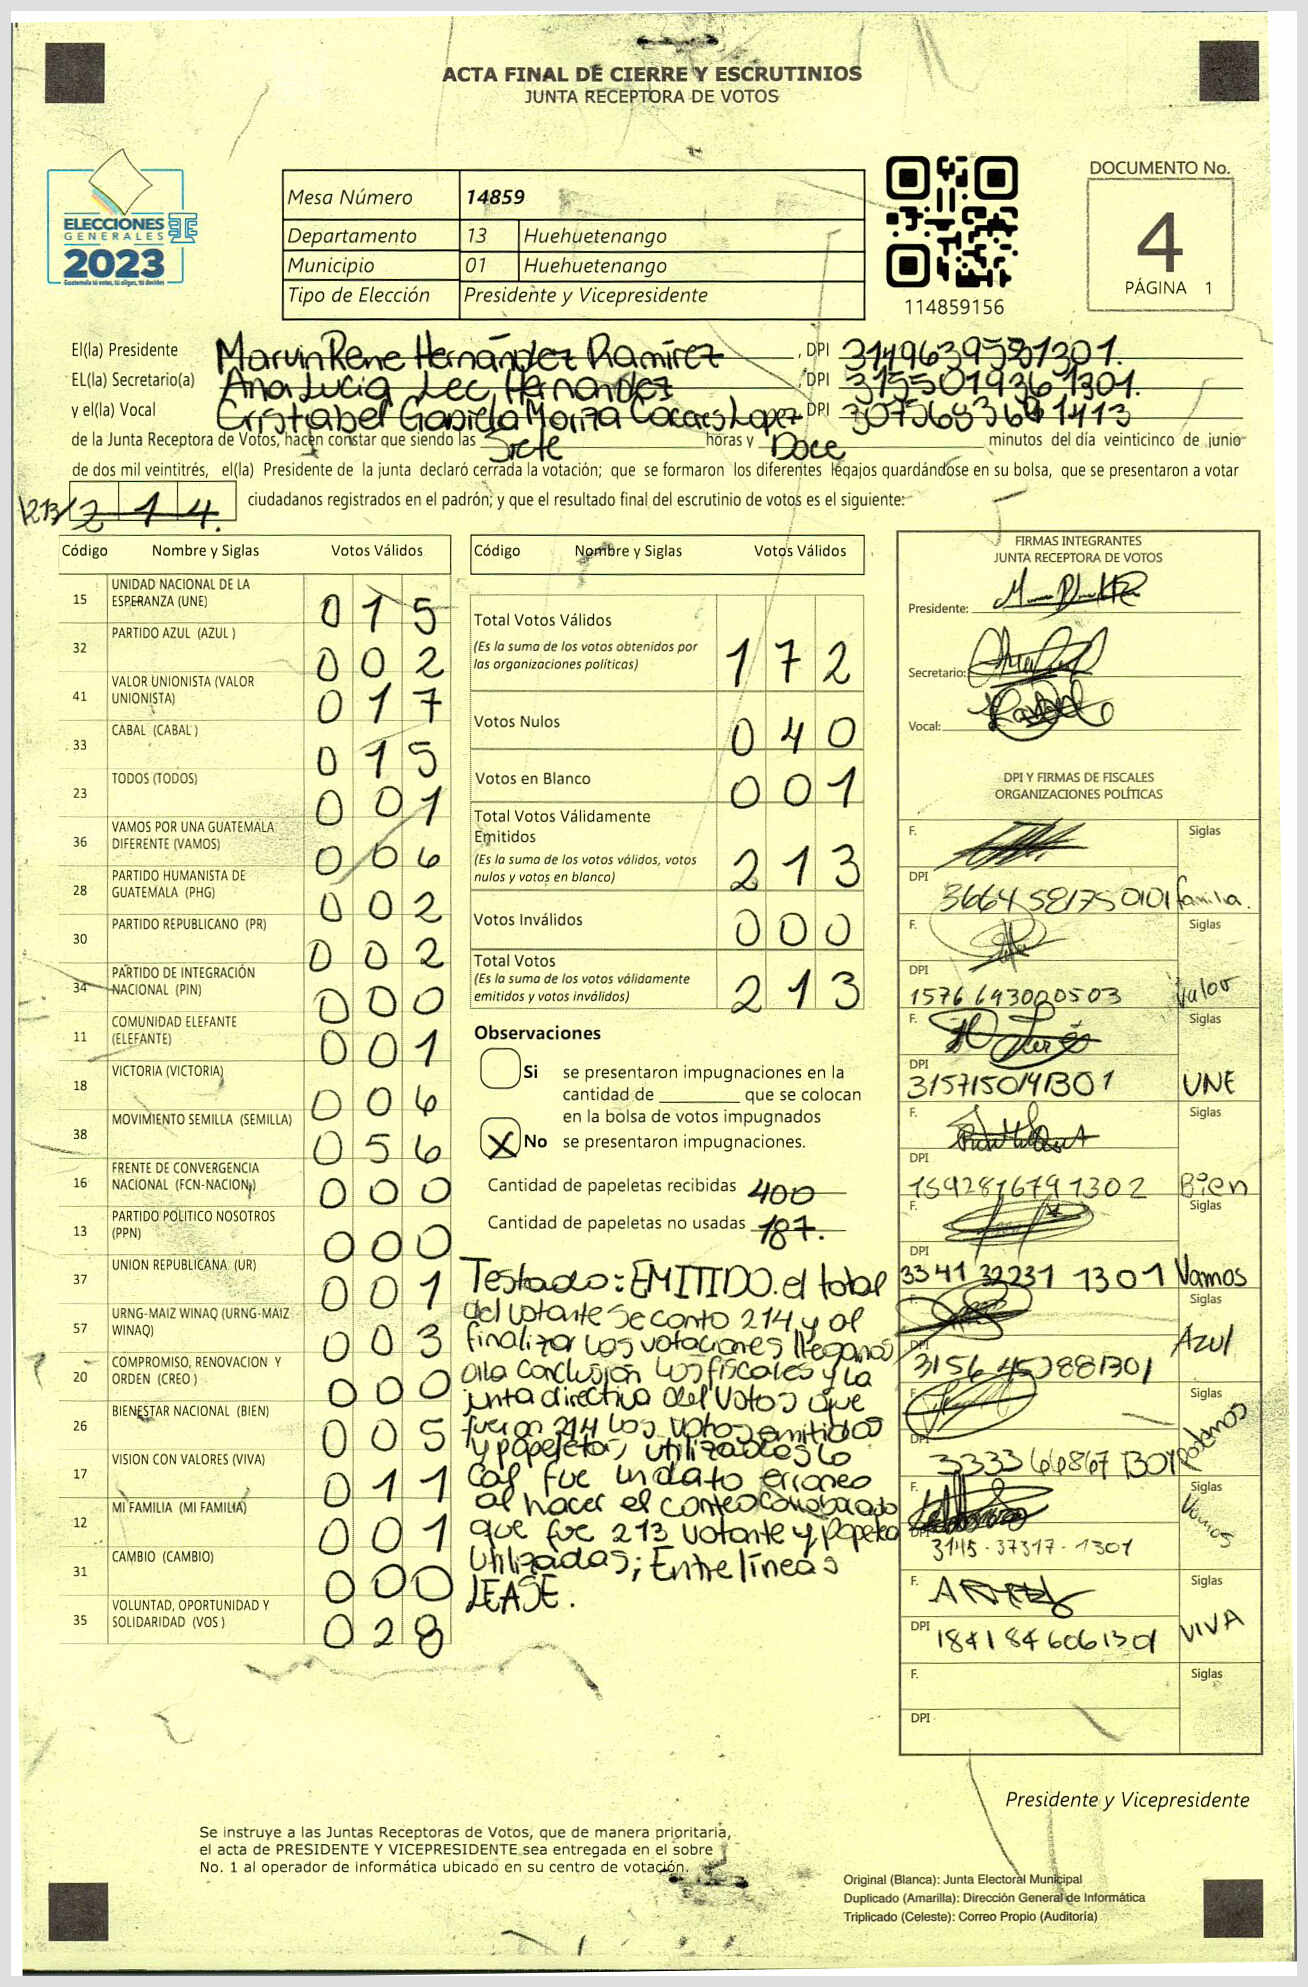 ACTA FINAL DE CIERRE Y ESCRUTINIOS
JUNTA RECEPTORA DE VOTOS
ELECCIONES
GENERALES
2023
Guatemala tú votas, tú eliges, tú decides
Mesa Número 14859
Departamento 13 Huehuetenango
Municipio 01 Huehuetenango
Tipo de Elección Presidente y Vicepresidente
114859156
DOCUMENTO No.
4
PÁGINA 1
El(la) Presidente Marvin Rene Hernández Ramírez, DPI
EL(la) Secretario(a) Ana Lucia Lec Hernandez, DPI 3155019361301.
y el(la) Vocal Cristiabel Lopez DPI
de la Junta Receptora de Votos, hacen constar que siendo las Siete horas y Doce minutos del día veinticinco de junio
de dos mil veintitrés, el(la) Presidente de la junta declaró cerrada la votación; que se formaron los diferentes legajos quardándose en su bolsa, que se presentaron a votar
213/ 2 1 4. ciudadanos registrados en el padrón; y que el resultado final del escrutinio de votos es el siguiente:
Código Nombre y Siglas Votos Válidos
15 UNIDAD NACIONAL DE LA ESPERANZA (UNE) 0 1 5
32 PARTIDO AZUL (AZUL ) 0 0 2
41 VALOR UNIONISTA (VALOR UNIONISTA) 0 1 7
33 CABAL (CABAL ) 0 1 5
23 TODOS (TODOS) 0 0 1
36 VAMOS POR UNA GUATEMALA DIFERENTE (VAMOS) 0 0 6
28 PARTIDO HUMANISTA DE GUATEMALA (PHG) 0 0 2
30 PARTIDO REPUBLICANO (PR) 0 0 2
34 PARTIDO DE INTEGRACIÓN NACIONAL (PIN) 0 0 0
11 COMUNIDAD ELEFANTE (ELEFANTE) 0 0 1
18 VICTORIA (VICTORIA) 0 0 6
38 MOVIMIENTO SEMILLA (SEMILLA) 0 5 6
16 FRENTE DE CONVERGENCIA NACIONAL (FCN-NACION) 0 0 0
13 PARTIDO POLITICO NOSOTROS (PPN) 0 0 0
37 UNION REPUBLICANA (UR) 0 0 1
57 URNG-MAIZ WINAQ (URNG-MAIZ WINAQ) 0 0 3
20 COMPROMISO, RENOVACION Y ORDEN (CREO ) 0 0 0
26 BIENESTAR NACIONAL (BIEN) 0 0 5
17 VISION CON VALORES (VIVA) 0 1 1
12 MI FAMILIA (MI FAMILIA) 0 0 1
31 CAMBIO (CAMBIO) 0 0 0
35 VOLUNTAD, OPORTUNIDAD Y SOLIDARIDAD (VOS ) 0 2 8
Código Nombre y Siglas Votos Válidos
Total Votos Válidos 1 7 2
(Es la suma de los votos obtenidos por
las organizaciones políticas)
Votos Nulos 0 4 0
Votos en Blanco 0 0 1
Total Votos Válidamente
Emitidos 2 1 3
(Es la suma de los votos válidos, votos
nulos y votos en blanco)
Votos Inválidos 0 0 0
Total Votos 2 1 3
(Es la suma de los votos válidamente
emitidos y votos inválidos)
Observaciones
Si se presentaron impugnaciones en la
cantidad de ________ que se colocan
en la bolsa de votos impugnados
X No se presentaron impugnaciones.
Cantidad de papeletas recibidas 400
Cantidad de papeletas no usadas 187.
Testado: EMITIDO. el total
del votante se conto 214 y al
finalizar los votaciones llegamos
a la conclusión los fiscales y la
junta directiva del votos que
fueron 214 los votos emitidos
y papeletas utilizadas lo
cal fue un dato erroneo
al hacer el conteo comobarado
que fue 213 votante y papeleta
utilizadas; Entre líneas
LEASE.
FIRMAS INTEGRANTES
JUNTA RECEPTORA DE VOTOS
Presidente:
Secretario:
Vocal:
DPI Y FIRMAS DE FISCALES
ORGANIZACIONES POLÍTICAS
F. Siglas
DPI 3664581750101 familia.
F. Siglas
DPI 1576693020503 Valor
F. Siglas
DPI 3157150141301 UNE
F. Siglas
DPI 1592816791302 Bien
F. Siglas
DPI 3341 32231 1301 Vamos
F. Siglas
DPI Azul
F. Siglas
DPI 3333 66867 1301 Podemos
F. Siglas
DPI 3145-37317-1301 Vamos
F. Siglas
DPI 1841846061301 VIVA
F. Siglas
DPI
Presidente y Vicepresidente
Se instruye a las Juntas Receptoras de Votos, que de manera prioritaria,
el acta de PRESIDENTE Y VICEPRESIDENTE sea entregada en el sobre
No. 1 al operador de informática ubicado en su centro de votación.
Original (Blanca): Junta Electoral Municipal
Duplicado (Amarilla): Dirección General de Informática
Triplicado (Celeste): Correo Propio (Auditoría)